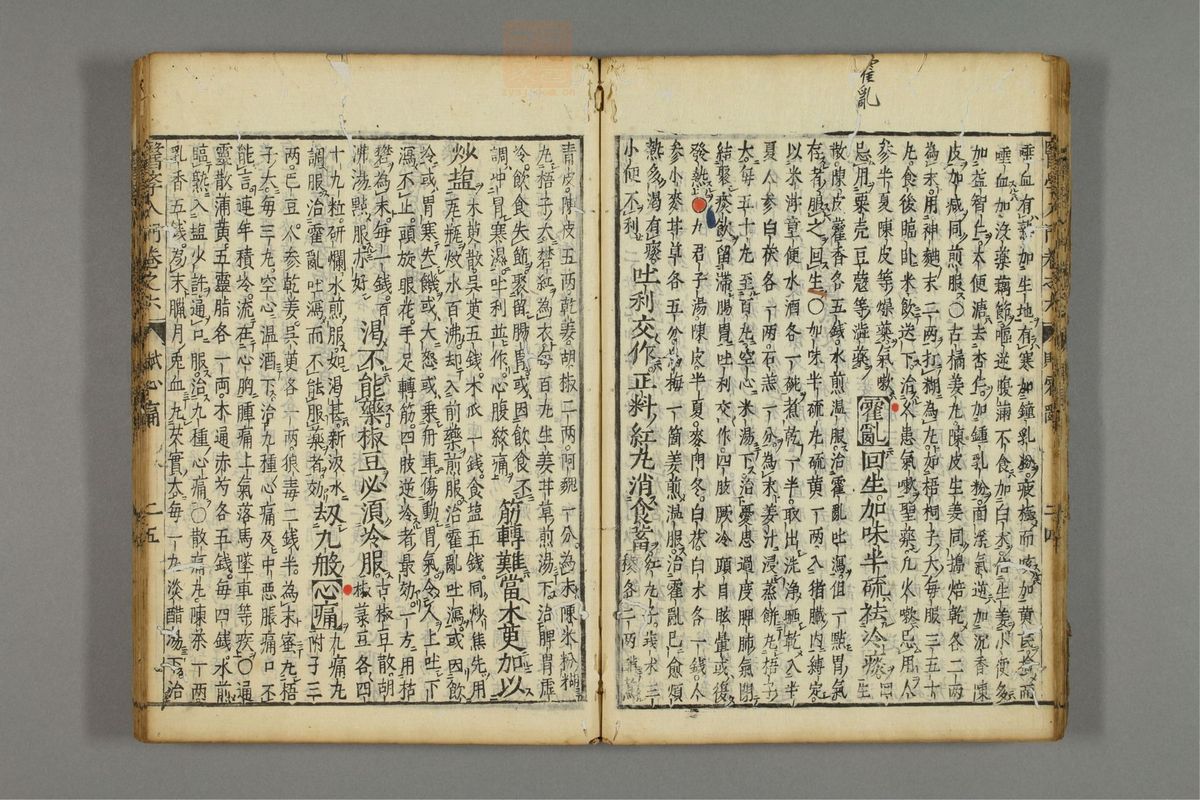 霍亂
唾血有熱加生地有寒加鐘乳粉疲極而咳加黃民
唾血加沒藥藕節嘔逆腹滿不食加白朮倍生姜小便多
加益智仁大便溏去杏仁加鍾乳粉面浮氣逆加沉香陳
皮加减同煎服〇古橘姜丸陳皮生姜同搗焙乾各二兩
為末用神麯末二兩打糊為丸如梧桐子大每服三五十
丸食後臨臥米飲送下治久患氣嗽聖藥
參半夏陳皮等燥藥氣嗽
忌用粟壳豆蔻等澁藥霍亂回生加味半硫祛冷痰
散陳皮藿香各五錢水煎溫服治霍亂吐瀉但一點胃氣
存者服之回生〇加味半硫丸硫黃一兩入猪臟內縛定
以米泔童便水酒各一碗煮乾一半取出洗淨晒乾入半
夏人參白茯各一兩石羔一分為末姜汁浸蒸餅丸梧子
大每五十丸至百丸空心米湯下治憂思過度脾肺氣閉
結聚痰飲留滯腸胃吐利交作四肢厥冷頭目眩暈或復
發熱〇九君子湯陳皮半夏麥門冬白茯白朮各一錢人
參小麥甘草各五分烏梅一箇姜煎溫服治霍亂已愈煩
熱多渴有痰小便不利吐利交作正料紅丸消食蓄紅丸子莪朮三
稜各二兩
青皮陳皮五兩乾姜胡椒二兩阿魏一分為末陳米粉糊
丸梧子大礬紅為衣每百丸生姜甘草煎湯下治脾胃虛
冷飲食失節聚留腸胃或因飲食不
調冲冒寒濕吐利並作心腹絞痛筋轉難當木萸加以
炒塩木萸散吳萸五錢木瓜一錢食塩五錢同炒焦先用
瓦瓶煅水百沸却入前藥煎服治霍亂吐瀉或因飲
冷或胃寒失饑或大怒或乗舟車傷動胃氣令人上吐下
瀉不止頭旋眼花手足轉筋四肢逆冷者最効一方用枯
礬為末每一錢百
沸湯點服亦好渴不能藥椒豆必須冷服古椒豆散胡
椒菉豆各四
十九粒研爛水煎服如渴甚新汲水
調服治霍亂吐瀉而不能服藥者効刼九般心痛九痛丸
附子三
兩巴豆人參乾姜吳萸各一兩狼毒二錢半為末蜜丸梧
子大每三丸空心溫酒下治九種心痛及中惡脹痛口不
能言連年積冷流在心胸腫痛上氣落馬墜車等疾〇通
靈散蒲黃五靈脂各一兩木通赤芍各五錢每四錢水煎
臨熟入塩少許通口服治九種心痛〇散痛丸陳茶一兩
乳香五錢為末臘月兎血丸芡實大每一丸淡醋湯下治